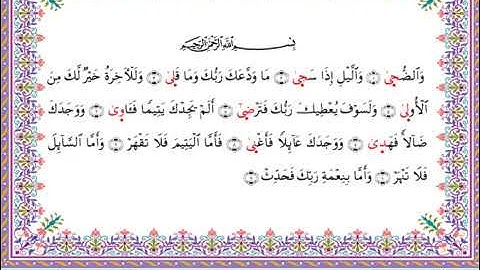 بِسْمِ اللَّهِ الرَّحْمَٰنِ الرَّحِيمِ
وَالضُّحَىٰ ۝ وَالَّيْلِ إِذَا سَجَىٰ ۝ مَا وَدَّعَكَ رَبُّكَ وَمَا قَلَىٰ ۝ وَلَلْآخِرَةُ خَيْرٌ لَّكَ مِنَ
الْأُولَىٰ ۝ وَلَسَوْفَ يُعْطِيكَ رَبُّكَ فَتَرْضَىٰ ۝ أَلَمْ يَجِدْكَ يَتِيمًا فَـَٔاوَىٰ ۝ وَوَجَدَكَ
ضَآلًّا فَهَدَىٰ ۝ وَوَجَدَكَ عَآئِلًا فَأَغْنَىٰ ۝ فَأَمَّا الْيَتِيمَ فَلَا تَقْهَرْ ۝ وَأَمَّا السَّآئِلَ
فَلَا تَنْهَرْ ۝ وَأَمَّا بِنِعْمَةِ رَبِّكَ فَحَدِّثْ ۝